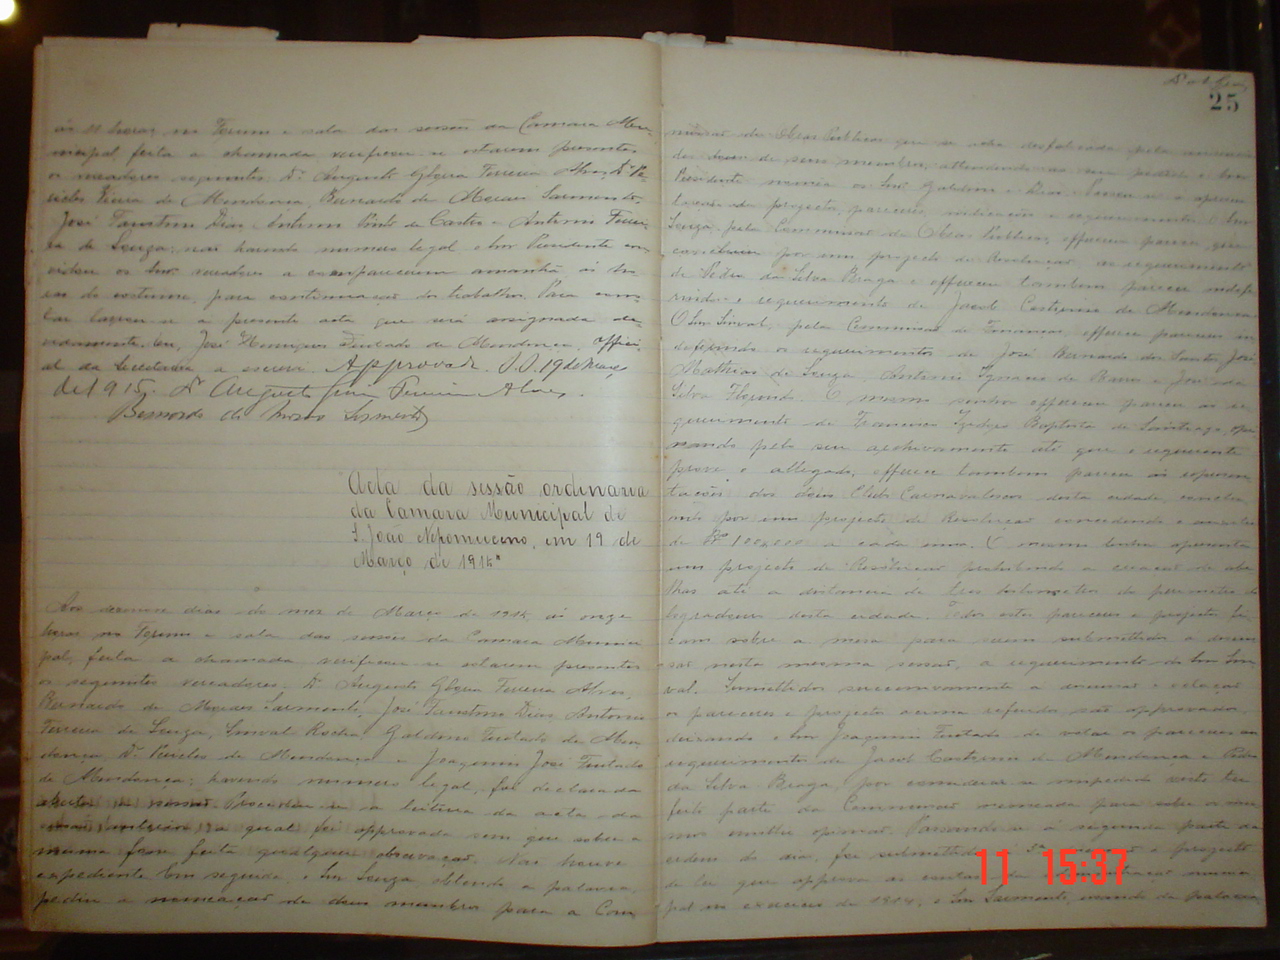 ás 11 horas, no Forum e sala das sessões da Camara Muni-
cipal, feita a chamada verificou-se estarem presentes
os vereadores seguintes: Dr. Augusto Glória Ferreira Alves, Dr. Pe-
ricles Vieira de Mendonça, Bernardo de Moraes Sarmento,
José Faustino Dias, Antonio Pinto de Castro e Antonio Ferrei-
ra de Souza; não havendo numero legal o Snr. Presidente con-
vidou os Snrs. vereadores a comparecerem amanhã, ás ho-
ras do costume, para continuação dos trabalhos. Para cons-
tar lavrou-se a presente acta que será assignada de-
vidamente. Eu, José Henriques Furtado de Mendonça, offici-
al da Secretaria a escrevi. Approvada. S. S. 19 de Março
de 1915. Dr. Augusto Glória Ferreira Alves.
Bernardo de Moraes Sarmento
Acta da sessão ordinaria
da Camara Municipal de
S. João Nepomuceno, em 19 de
Março de 1915
Aos dezenove dias do mez de Março de 1915, ás onze
horas no Forum e sala das sessões da Camara Munici-
pal, feita a chamada verificou-se estarem presentes
os seguintes vereadores: Dr. Augusto Glória Ferreira Alves,
Bernardo de Moraes Sarmento, José Faustino Dias, Antonio
Ferreira de Souza, Sinval Rocha, Galdino Furtado de Men-
donça, Dr. Pericles de Mendonça e Joaquim José Furtado
de Mendonça; havendo numero legal, foi declarada
aberta a sessão. Procedeu-se a leitura da acta da
a qual foi approvada sem que sobre a
mesma fosse feita qualquer observação. Não houve
expediente. Em seguida, o Snr. Souza obtendo a palavra,
pediu a nomeação de dois membros para a Com-
25
missão de Obras Publicas que se acha desfalcada pela ausencia
dos dous de seus membros; attendendo ao seu pedido o Snr.
Presidente nomeia os Snrs. Galdino e Dias. Passou-se a apresen-
tação de projectos, pareceres, indicações e requerimentos. O Snr.
Souza, pela Commissão de Obras Publicas, offerece parecer, que
concluem por um projecto de Resolução, ao requerimento
de Pedro da Silva Braga e offerece tambem parecer indefe-
rindo o requerimento de Jacob Costeira de Mendonça.
O Snr. Sinval, pela Commissão de Finanças, offerece parecer in-
deferindo os requerimentos de José Bernardo dos Santos, José
Mathias de Souza, Antonio Ignacio de Barros e José da
Silva Florindo. O mesmo senhor offerece parecer ao re-
querimento de Francisco Baptista de Santiago, opi-
nando pelo seu archivamento até que o requerente
prove o allegado; offerece tambem parecer ás represen-
tações dos dois Clubs Carnavalescos desta cidade, conclu-
indo por um projecto de Resolução concedendo o auxilio
de Rs 100,000 a cada um. O mesmo senhor apresenta
um projecto de Resolução prohibindo a creação de abe-
lhas até a distancia de tres kilometros do perimetro do
logradouro desta cidade. Todos estes pareceres e projectos fi-
cam sobre a mesa para serem submettidos a discus-
são nesta mesma sessão, a requerimento do Snr. Sin-
val. Submettidos successivamente a discussão e votação
os pareceres e projectos acima referidos, são approvados,
deixando o Snr. Joaquim Furtado de votar os pareceres aos
requerimentos de Jacob Costeira de Mendonça e Pedro
da Silva Braga, por considerar-se impedido visto ter
feito parte da Commissão nomeada para sobre os mes-
mos emittir opinião. Passando-se á segunda parte da
ordem do dia, foi submettido a discussão o projecto
de lei que approva as contas da munici-
pal no exercicio de 1914, o Snr. Sarmento, usando da palavra,
11 15:37